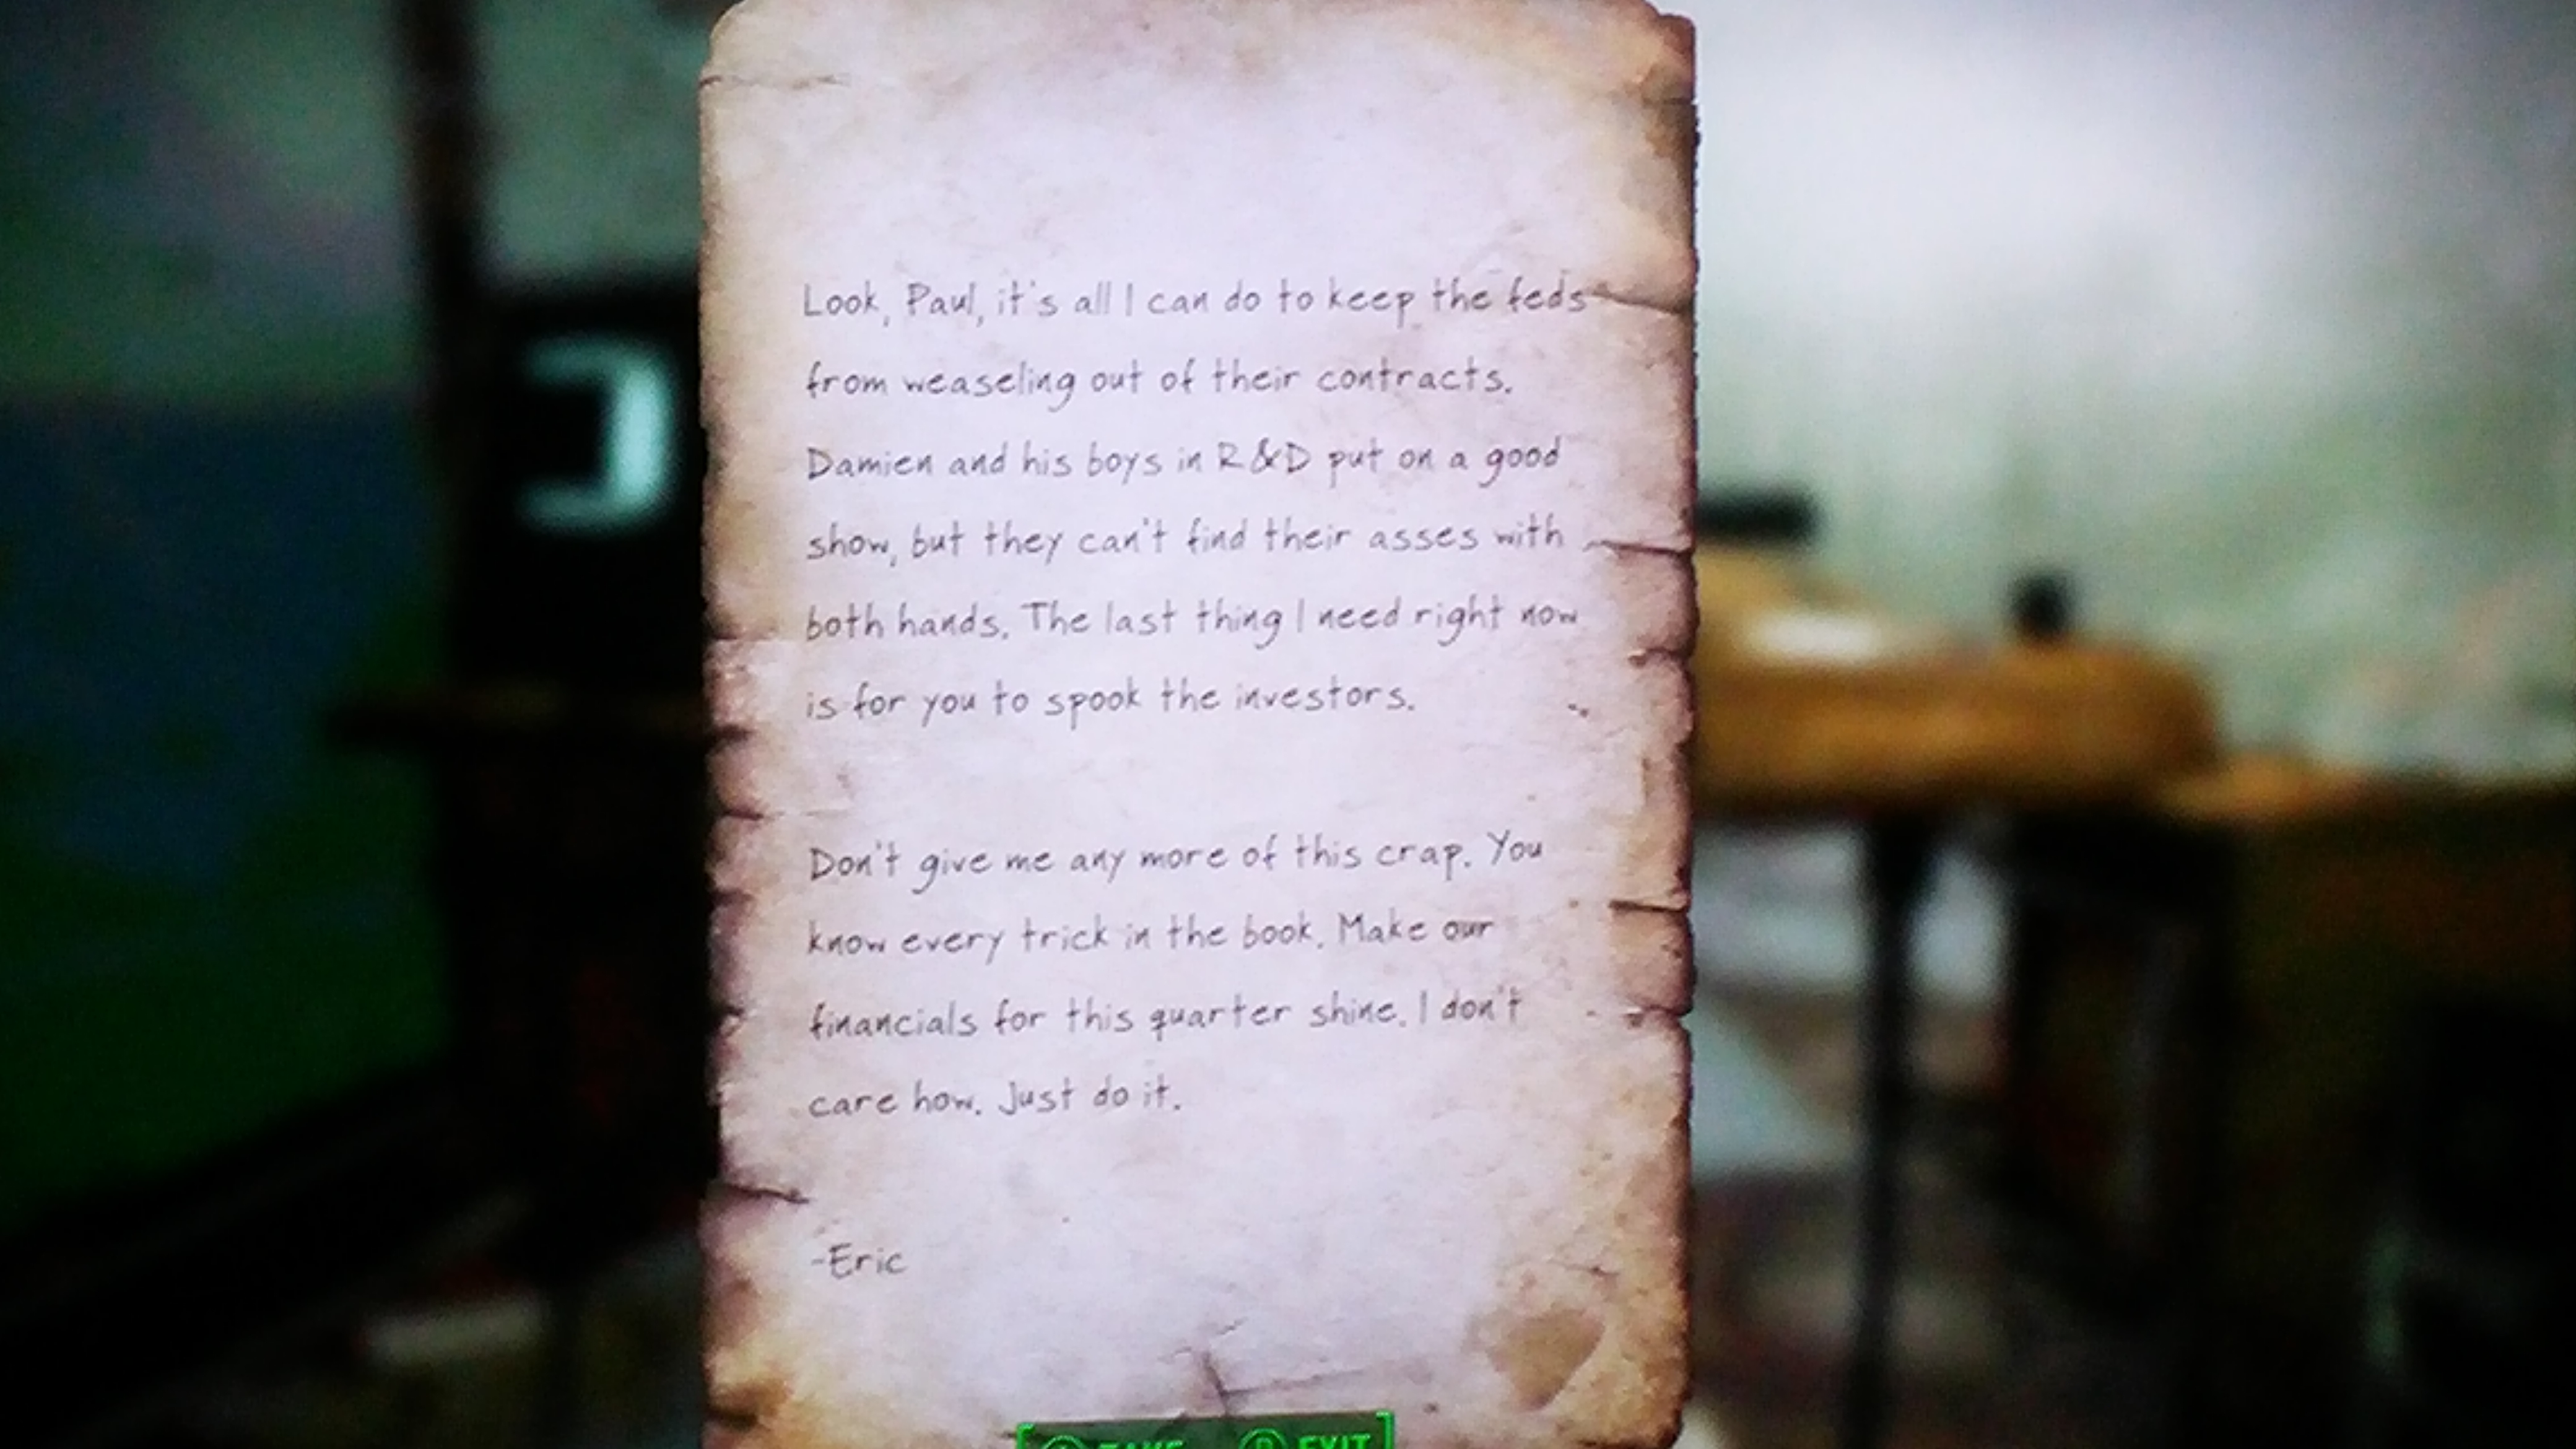 Look, Paul, it's all I can do to keep the feds
from weaseling out of their contracts.
Damien and his boys in R&D put on a good
show, but they can't find their asses with
both hands. The last thing I need right now
is for you to spook the investors.
Don't give me any more of this crap. You
know every trick in the book. Make our
financials for this quarter shine. I don't
care how. Just do it.
-Eric
TAKE EXIT